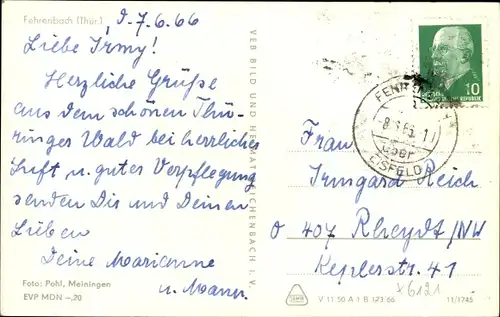 Fehrenbach (Thür.)
d. 7.6.66
Liebe Irmy!
Herzliche Grüße
aus dem schönen Thü-
ringer Wald bei herrlicher
Luft u. guter Verpflegung
senden Dir und Deinen
Lieben
Deine Marianne
u. Mann.
Foto: Pohl, Meiningen
EVP MDN –,20
VEB BILD UND HEIMAT REICHENBACH I. V.
10
über
EISFELD
Frau
Irmgard Reich
407 Rheydt/NW
Keplerstr. 41
x6121
V 11 50 A 1 B 123/66
11/1745